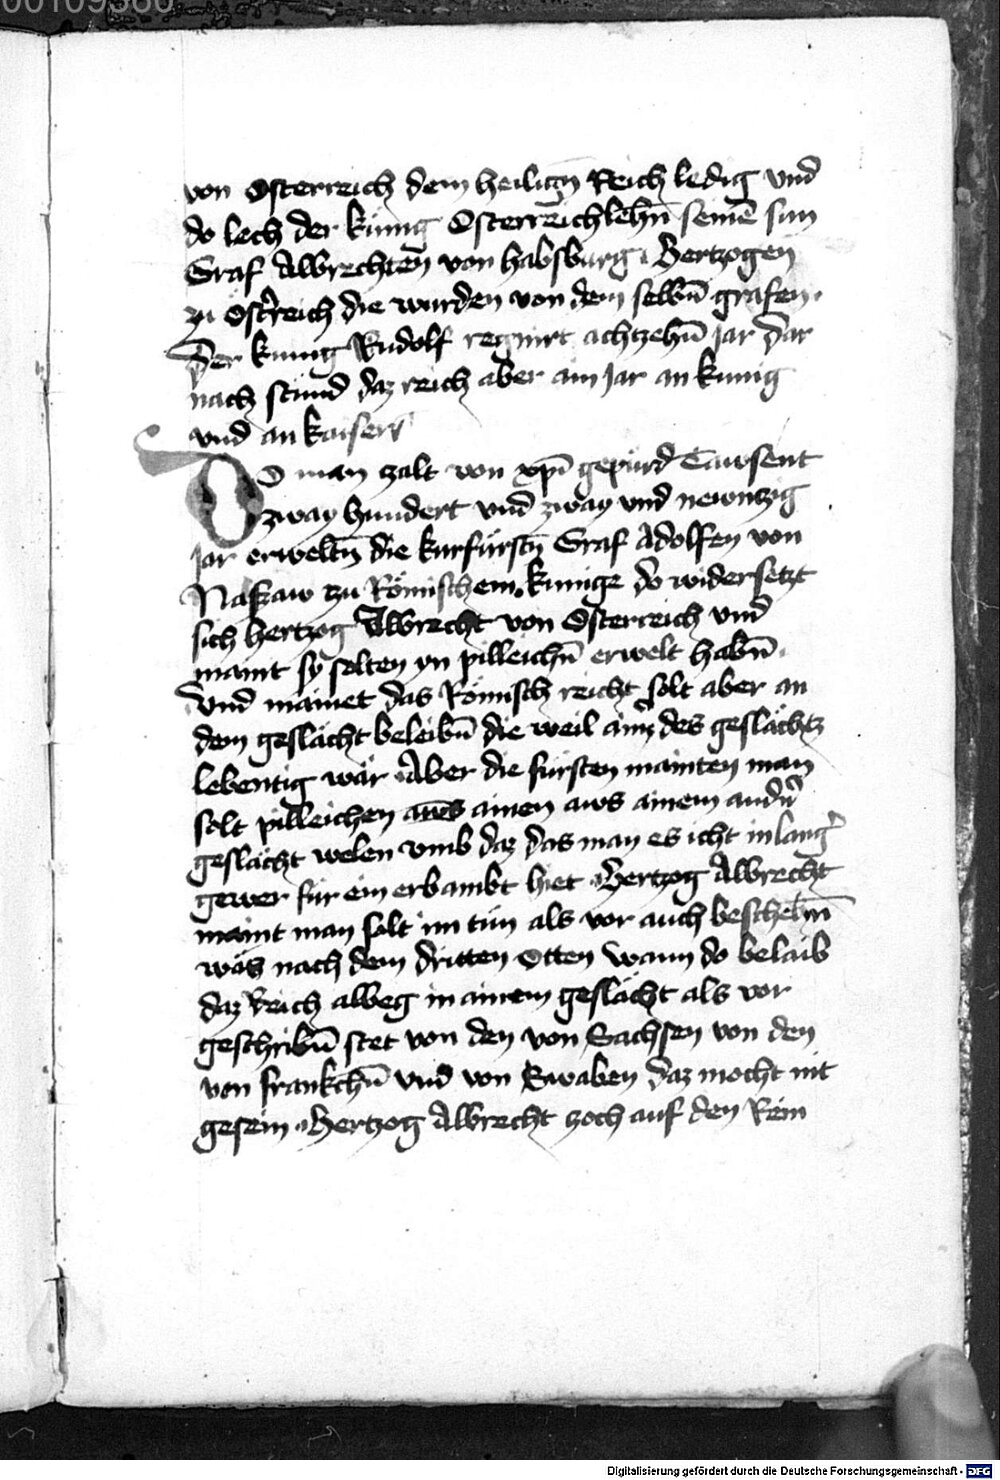 00109380
von Osterreich dem heilign̄ Reich ledig vnd
do lech der kűnig Osterreich lehn̄ seinē sun
Graf Albrechten von habsburg · Hertzogen
zu Ostʼreich die wurden von dem selbn̄ grafen ·
Der kunig Rudolf regnirt achtzehn̄ jar Dar
nach stűnd daz reich aber ain jar an kunig
vnd an kaiser
DO man zalt von xp̄i gepürd Tawsent
zway hundert vnd zway vnd newnzig
jar erweltn̄ die kurfürstn̄ Graf Adolfen von
Nassaw zu Römischem kunige Do widersetzt
sich hertzog Albrecht von Osterreich vnd
maint sy solten yn pilleichn̄ erwelt habn̄ ·
Vnd mainet das Römisch reicht solt aber an
dem geslächt beleibn̄ die weil ainʼ des geslächtz
lebentig wär · Aber die fürsten mainten man
solt pilleichen aws ainen aws ainem andʼn
geslächt welen vmb daz das man es icht in langʼ
gewer für ein erb ambt hiet · Hertzog Albrecht
maint man solt im tűn als vor auch beschehn̄
wäs nach dem dritten Otten Wann do belaib
daz Reich albeg in ainem geslächt als vor
geschribn̄ stet von den von Sachsen von den
von frankchn̄ vnd von Swaben Daz mocht nit
gesein · Hertzog Albrecht zoch auf den Rein
Digitalisierung gefördert durch die Deutsche Forschungsgemeinschaft - DFG